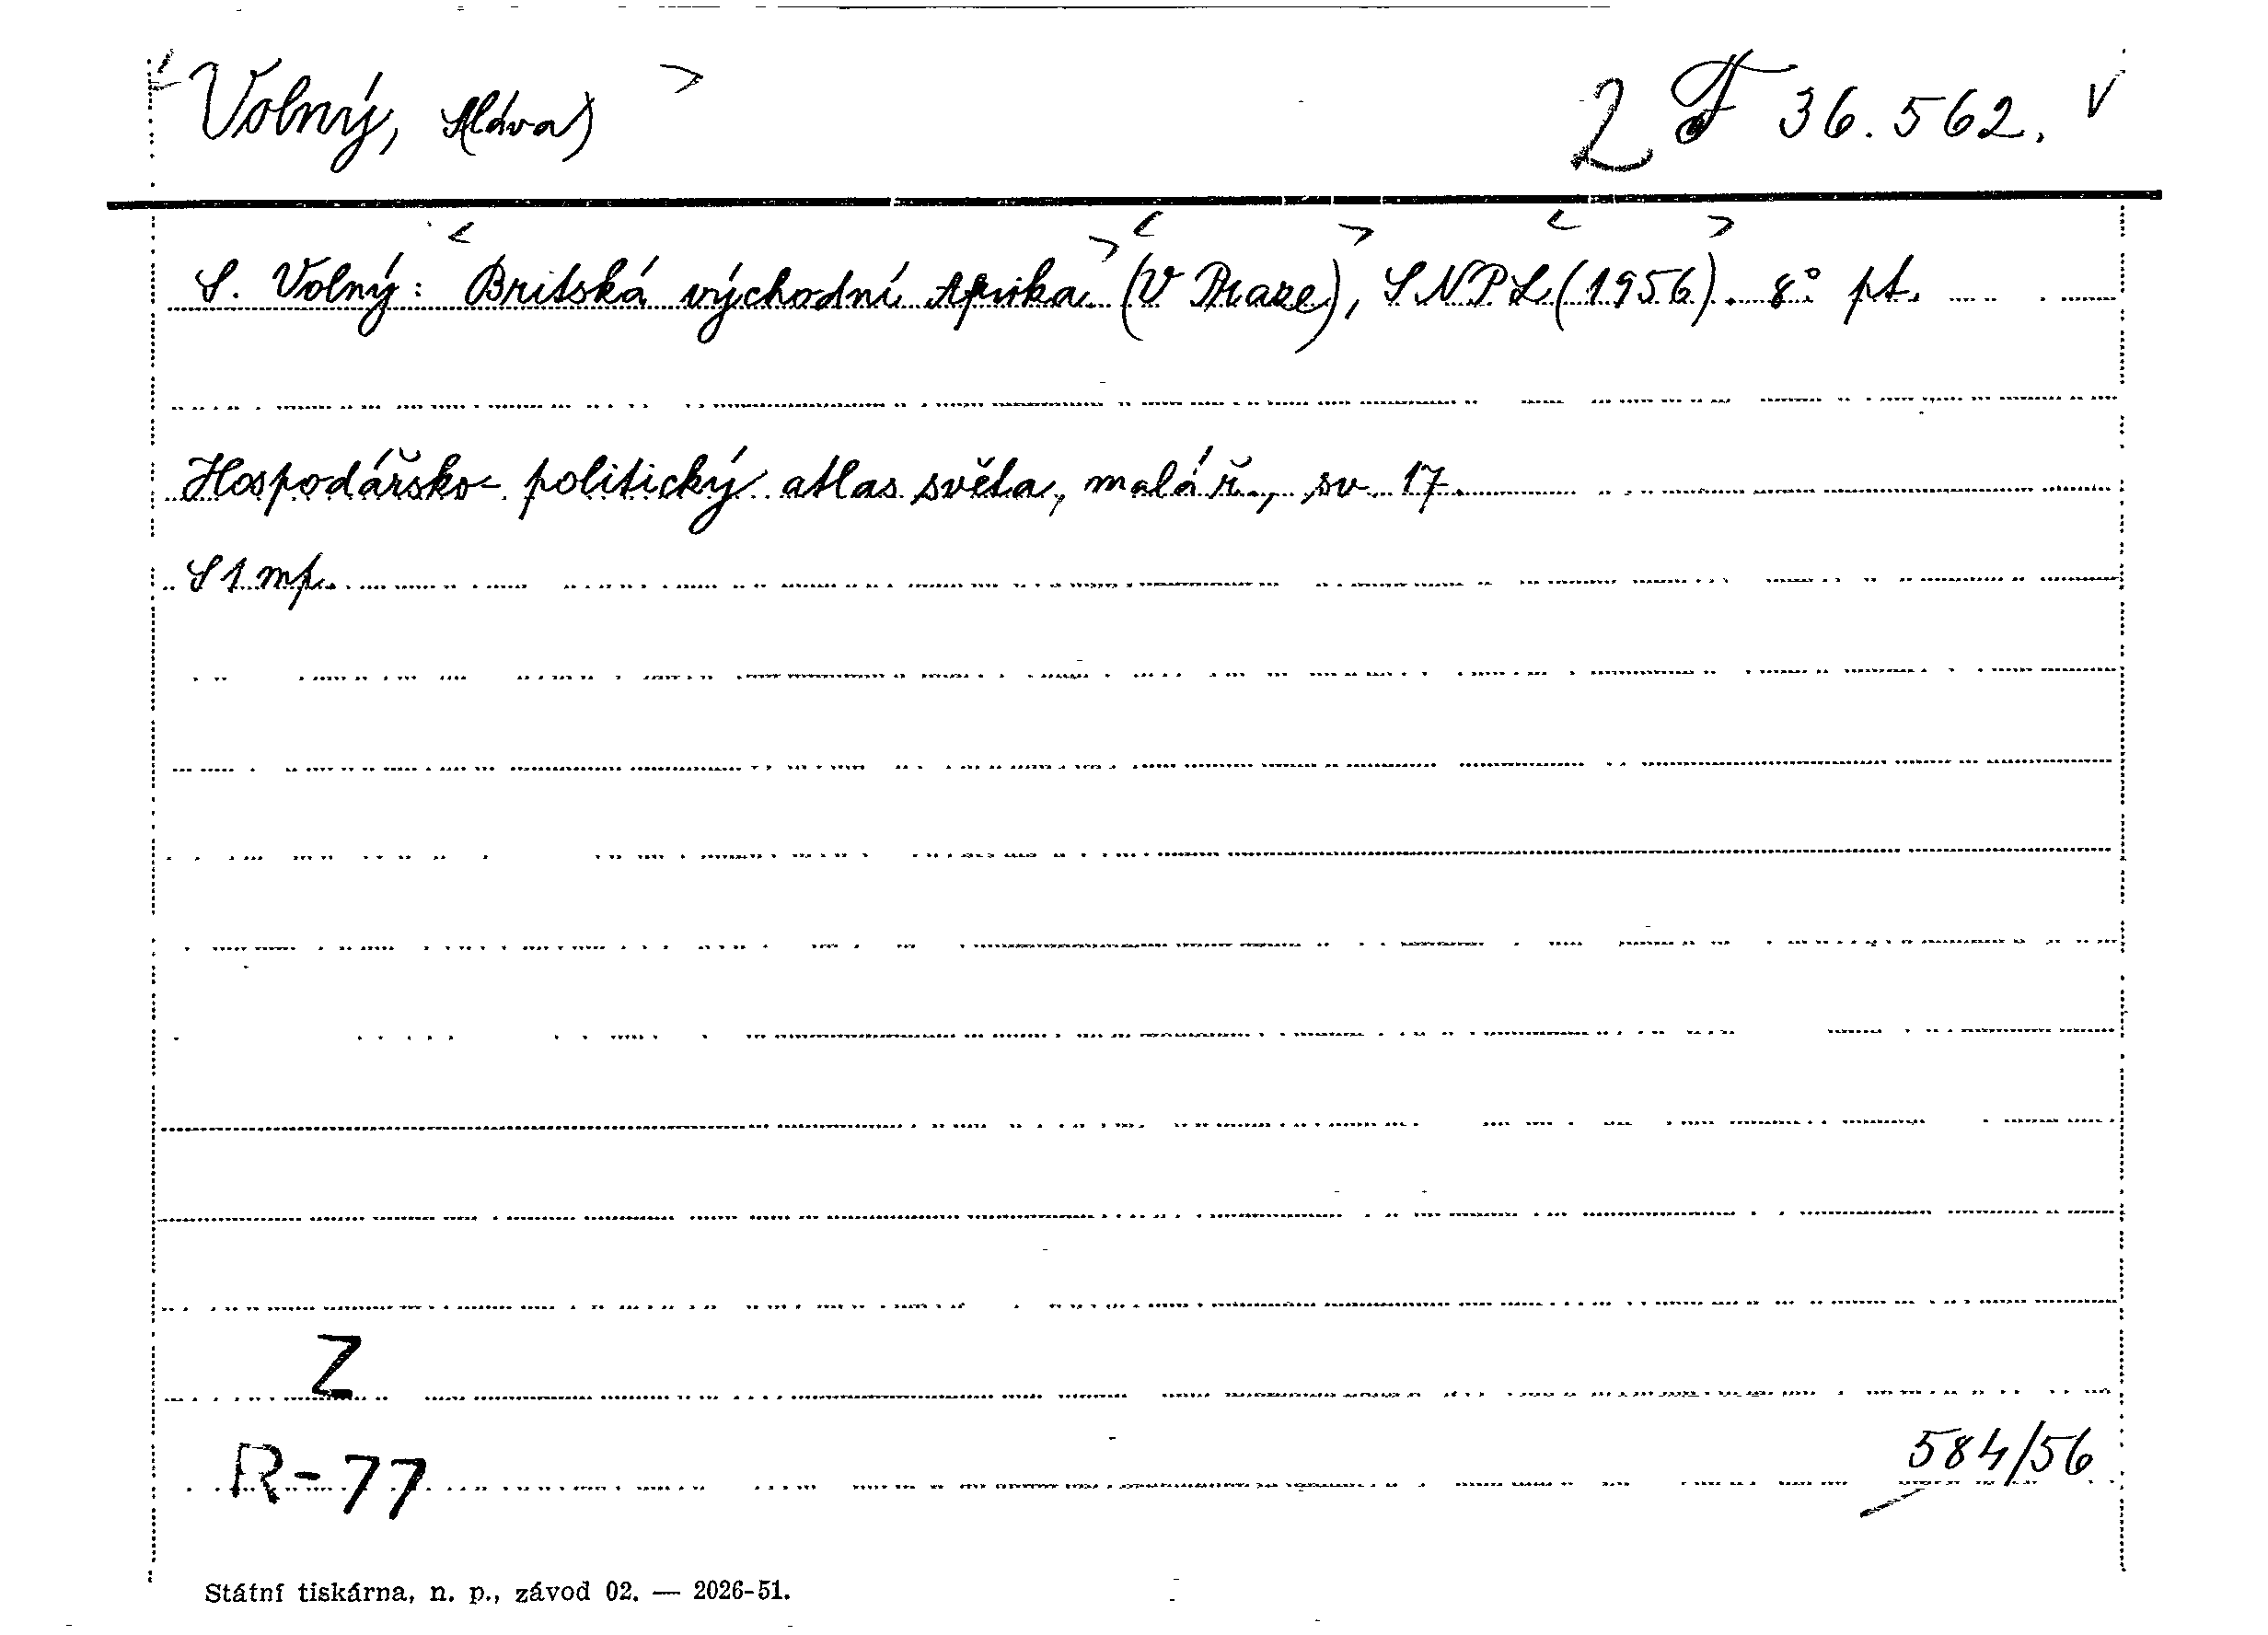 Volný, S(láva) 2 F 36.562. V
S. Volný: Britská východní Afrika. (V Praze), SNPL (1956). 8° pt.
Hospodářsko-politický atlas světa, malá ř., sv. 17.
S 1 mp.
Z
R-77 584/56
Státní tiskárna, n. p., závod 02. — 2026-51.